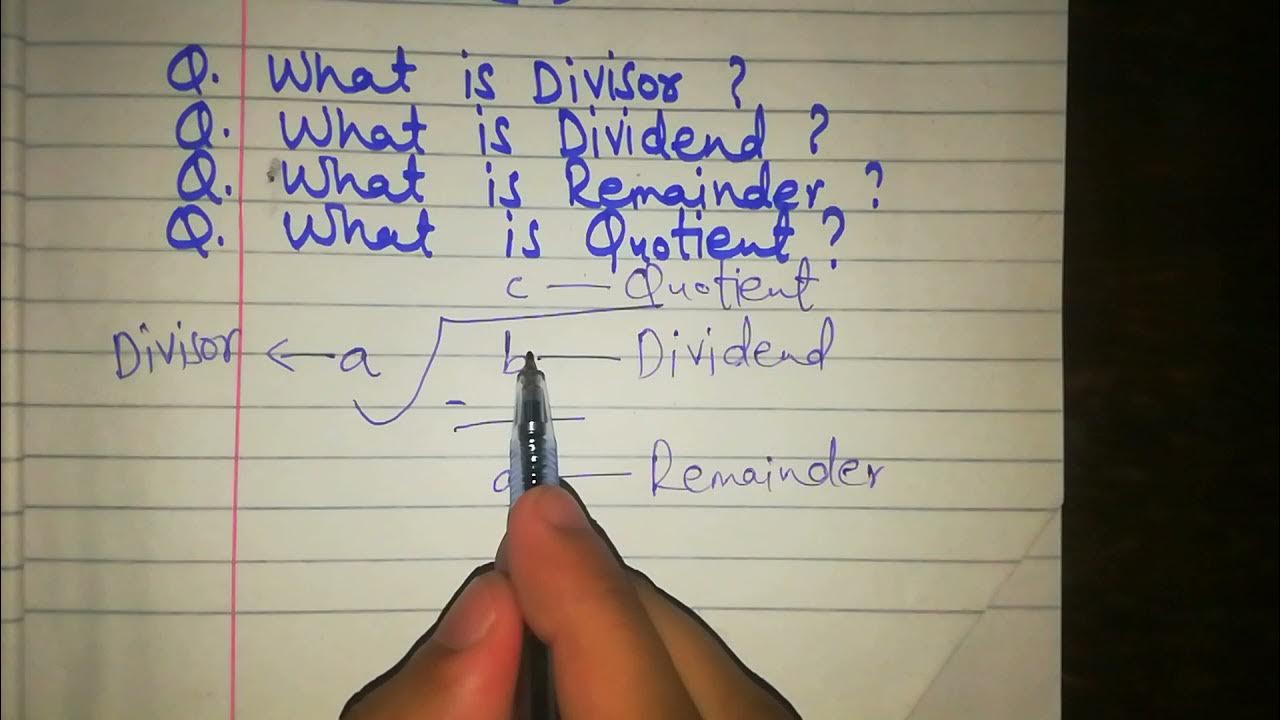 Q. What is Divisor ?
Q. What is Dividend ?
Q. What is Remainder ?
Q. What is Quotient ?
c — Quotient
Divisor ← a b — Dividend
-
— Remainder